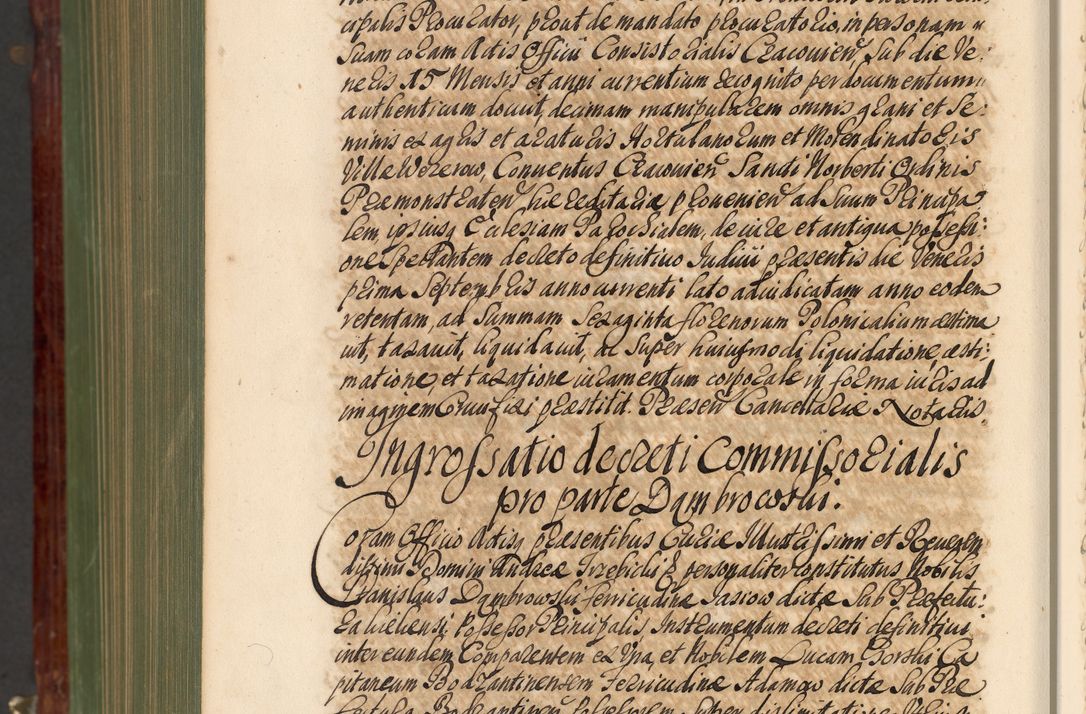 cipalis Procurator, prout de mandato procuratorio, in personam
suam coram Actis Officii Consistorialis Cracovien̄, sub die Ve:
neris 15 Mensis et anni currentium recognito per documentum
authenticum docuit, decimam manipularem omnis grani et se:
minis ex agris et araturis Hortulanorum et Molendinatoris
Villæ Wezerow, Conventus Cracovien̄ Sancti Norberti Ordinis
Præmonstraten̄ hæreditariæ provenien̄ ad suum Principa
lem, ipsiusq Ecclesiam Parochialem, de iure et antiqua possessi:
one spectantem decreto definitivo Iudicii præsentis die Veneris
prima Septembris anno currenti lato adiudicatam anno eodem
retentam, ad summam sexaginta florenorum Polonicalium æstima
vit, taxavit, liquidavit, ac super huiusmodi liquidatione, æsti:
matione, et taxatione iuramentum corporale in forma iuris ad
imaginem Crucifixi præstitit. Præsen̄ Cancellariæ Notariis.
Ingrossatio decreti Commissorialis
pro parte Dambrowski.
Coram Officio Actisq præsentibus Curiæ Illustrissimi et Reveren
dissimi Domini Andreæ Trzebicki &c personaliter constitutus Nobilis
Stanislaus Dambrowski ferricudinæ Jasiow dictæ sub Præfectu:
ra Kielcensi Possessor Principalis Instrumentum decreti definitivi
inter eundem Comparentem ex una, et Nobilem Lucam Borski Ca
pitaneum Bodzantinensem Ferricudinæ Adamow dictæ sub Præ
fectura Bodzantinen̄ Possessorem super dislimitatione